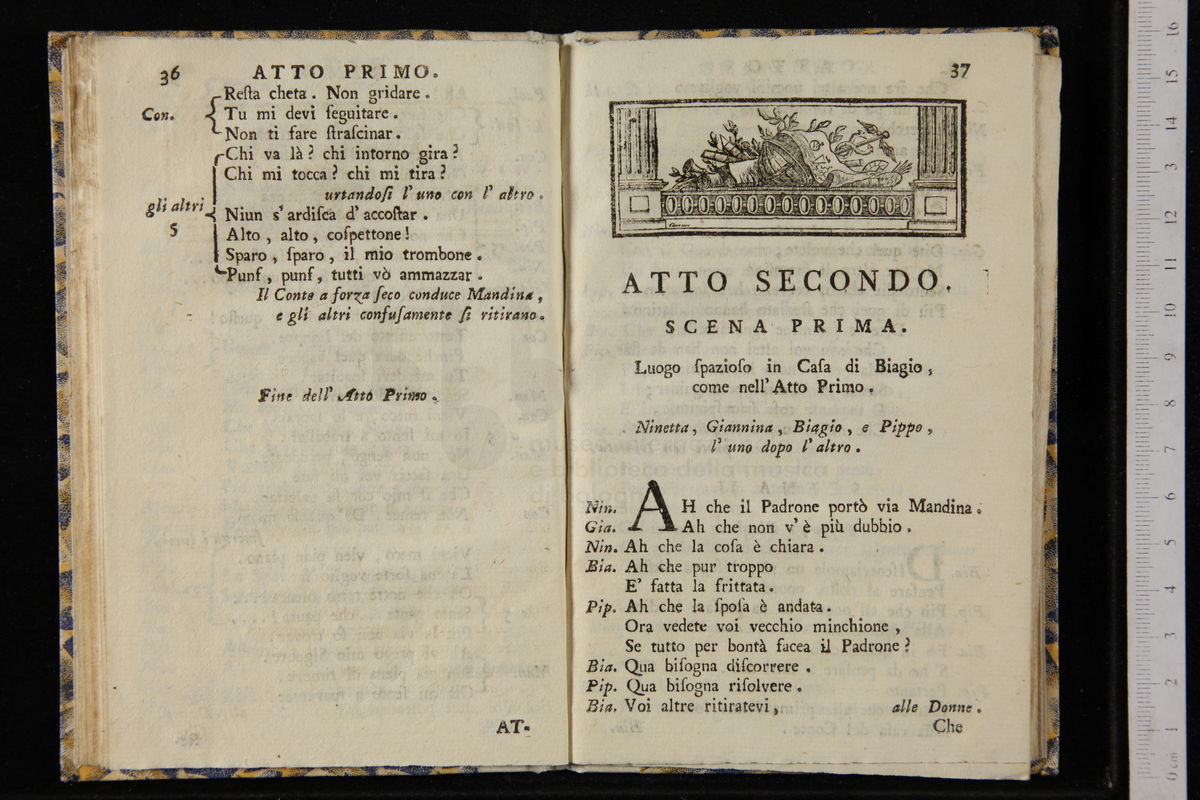 36 ATTO PRIMO.
Reſta cheta. Non gridare.
Con. Tu mi devi ſeguitare.
Non ti fare ſtraſcinar.
Chi va là? chi intorno gira?
Chi mi tocca? chi mi tira?
urtandoſi l'uno con l'altro.
gli altri Niun s'ardiſca d'accoſtar.
S Alto, alto, coſpettone!
Sparo, ſparo, il mio trombone.
Punf, punf, tutti vò ammazzar.
Il Conte a forza ſeco conduce Mandina,
e gli altri confuſamente ſi ritirano.
Fine dell'Atto Primo.
AT-
37
ATTO SECONDO.
SCENA PRIMA.
Luogo ſpazioſo in Caſa di Biagio,
come nell'Atto Primo.
Ninetta, Giannina, Biagio, e Pippo,
l'uno dopo l'altro.
Nin. AH che il Padrone portò via Mandina.
Gia. Ah che non v'è più dubbio.
Nin. Ah che la coſa è chiara.
Bia. Ah che pur troppo
E' fatta la frittata.
Pip. Ah che la ſpoſa è andata.
Ora vedete voi vecchio minchione,
Se tutto per bontà facea il Padrone?
Bia. Qua biſogna diſcorrere.
Pip. Qua biſogna riſolvere.
Bia. Voi altre ritiratevi, alle Donne.
Che
museo
e biblioteca della musica
di bologna
0 cm 1 2 3 4 5 6 7 8 9 10 11 12 13 14 15 16